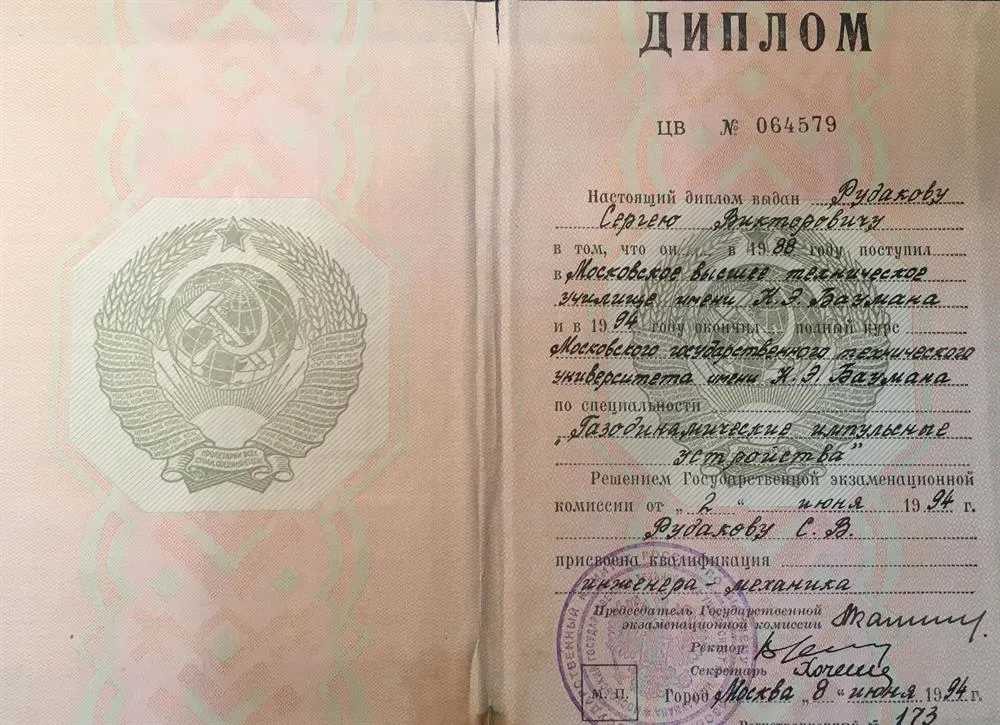 ПРОЛЕТАРИИ ВСЕХ
СТРАН, СОЕДИНЯЙТЕСЬ!
ДИПЛОМ
ЦВ № 064579
Настоящий диплом выдан Рудакову
Сергею Викторовичу
в том, что он в 1988 году поступил
в Московское высшее техническое
училище имени Н.Э. Баумана
и в 1994 году окончил полный курс
Московского государственного технического
университета имени Н.Э. Баумана
по специальности
„Газодинамические импульсные
устройства"
Решением Государственной экзаменационной
комиссии от „2" июня 1994 г.
Рудакову С. В.
присвоена квалификация
инженера-механика
Председатель Государственной
экзаменационной комиссии
Ректор
Секретарь
М. П.
Город Москва „8" июня 1994 г.
173